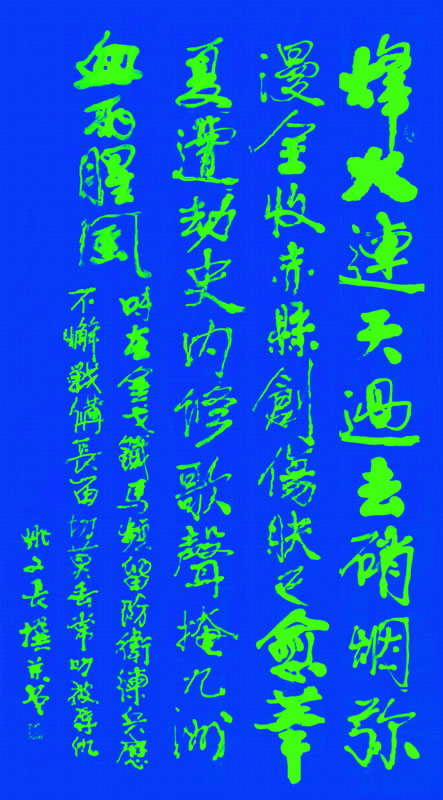 烽火連天過去硝烟弥
漫全收赤縣創傷快已愈華
夏遭劫史内修歌聲掩九洲
血雨腥風
時在金戈鐵馬頻留防衛練兵應
不懈戰備長留切莫丢常叨被辱仇
姚文長撰并书